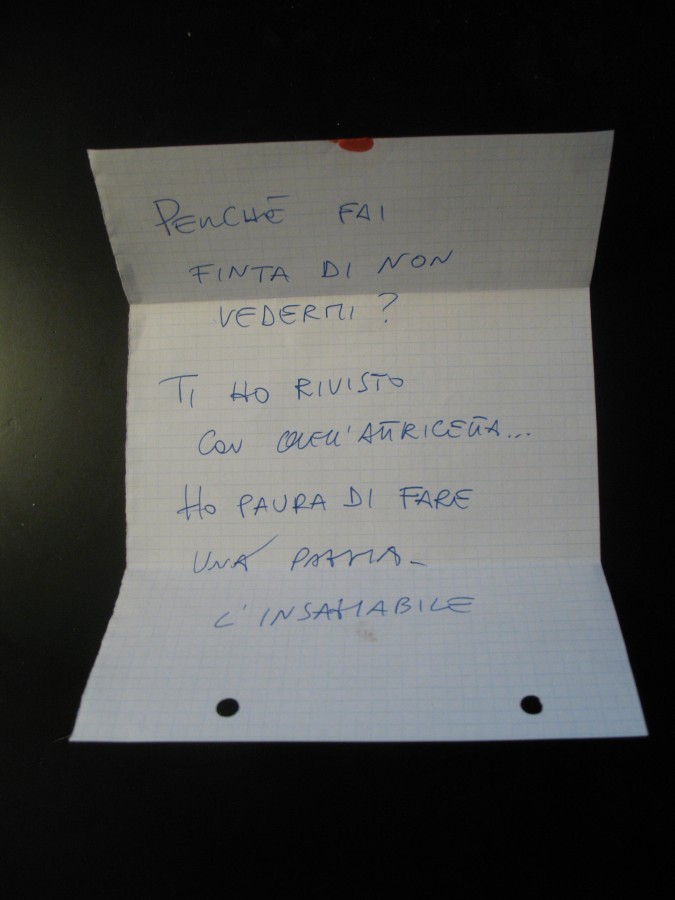 PERCHÉ FAI
FINTA DI NON
VEDERMI?
TI HO RIVISTO
CON QUELL'ATTRICETTA...
HO PAURA DI FARE
UNA PAZZIA_
L'INSAZIABILE